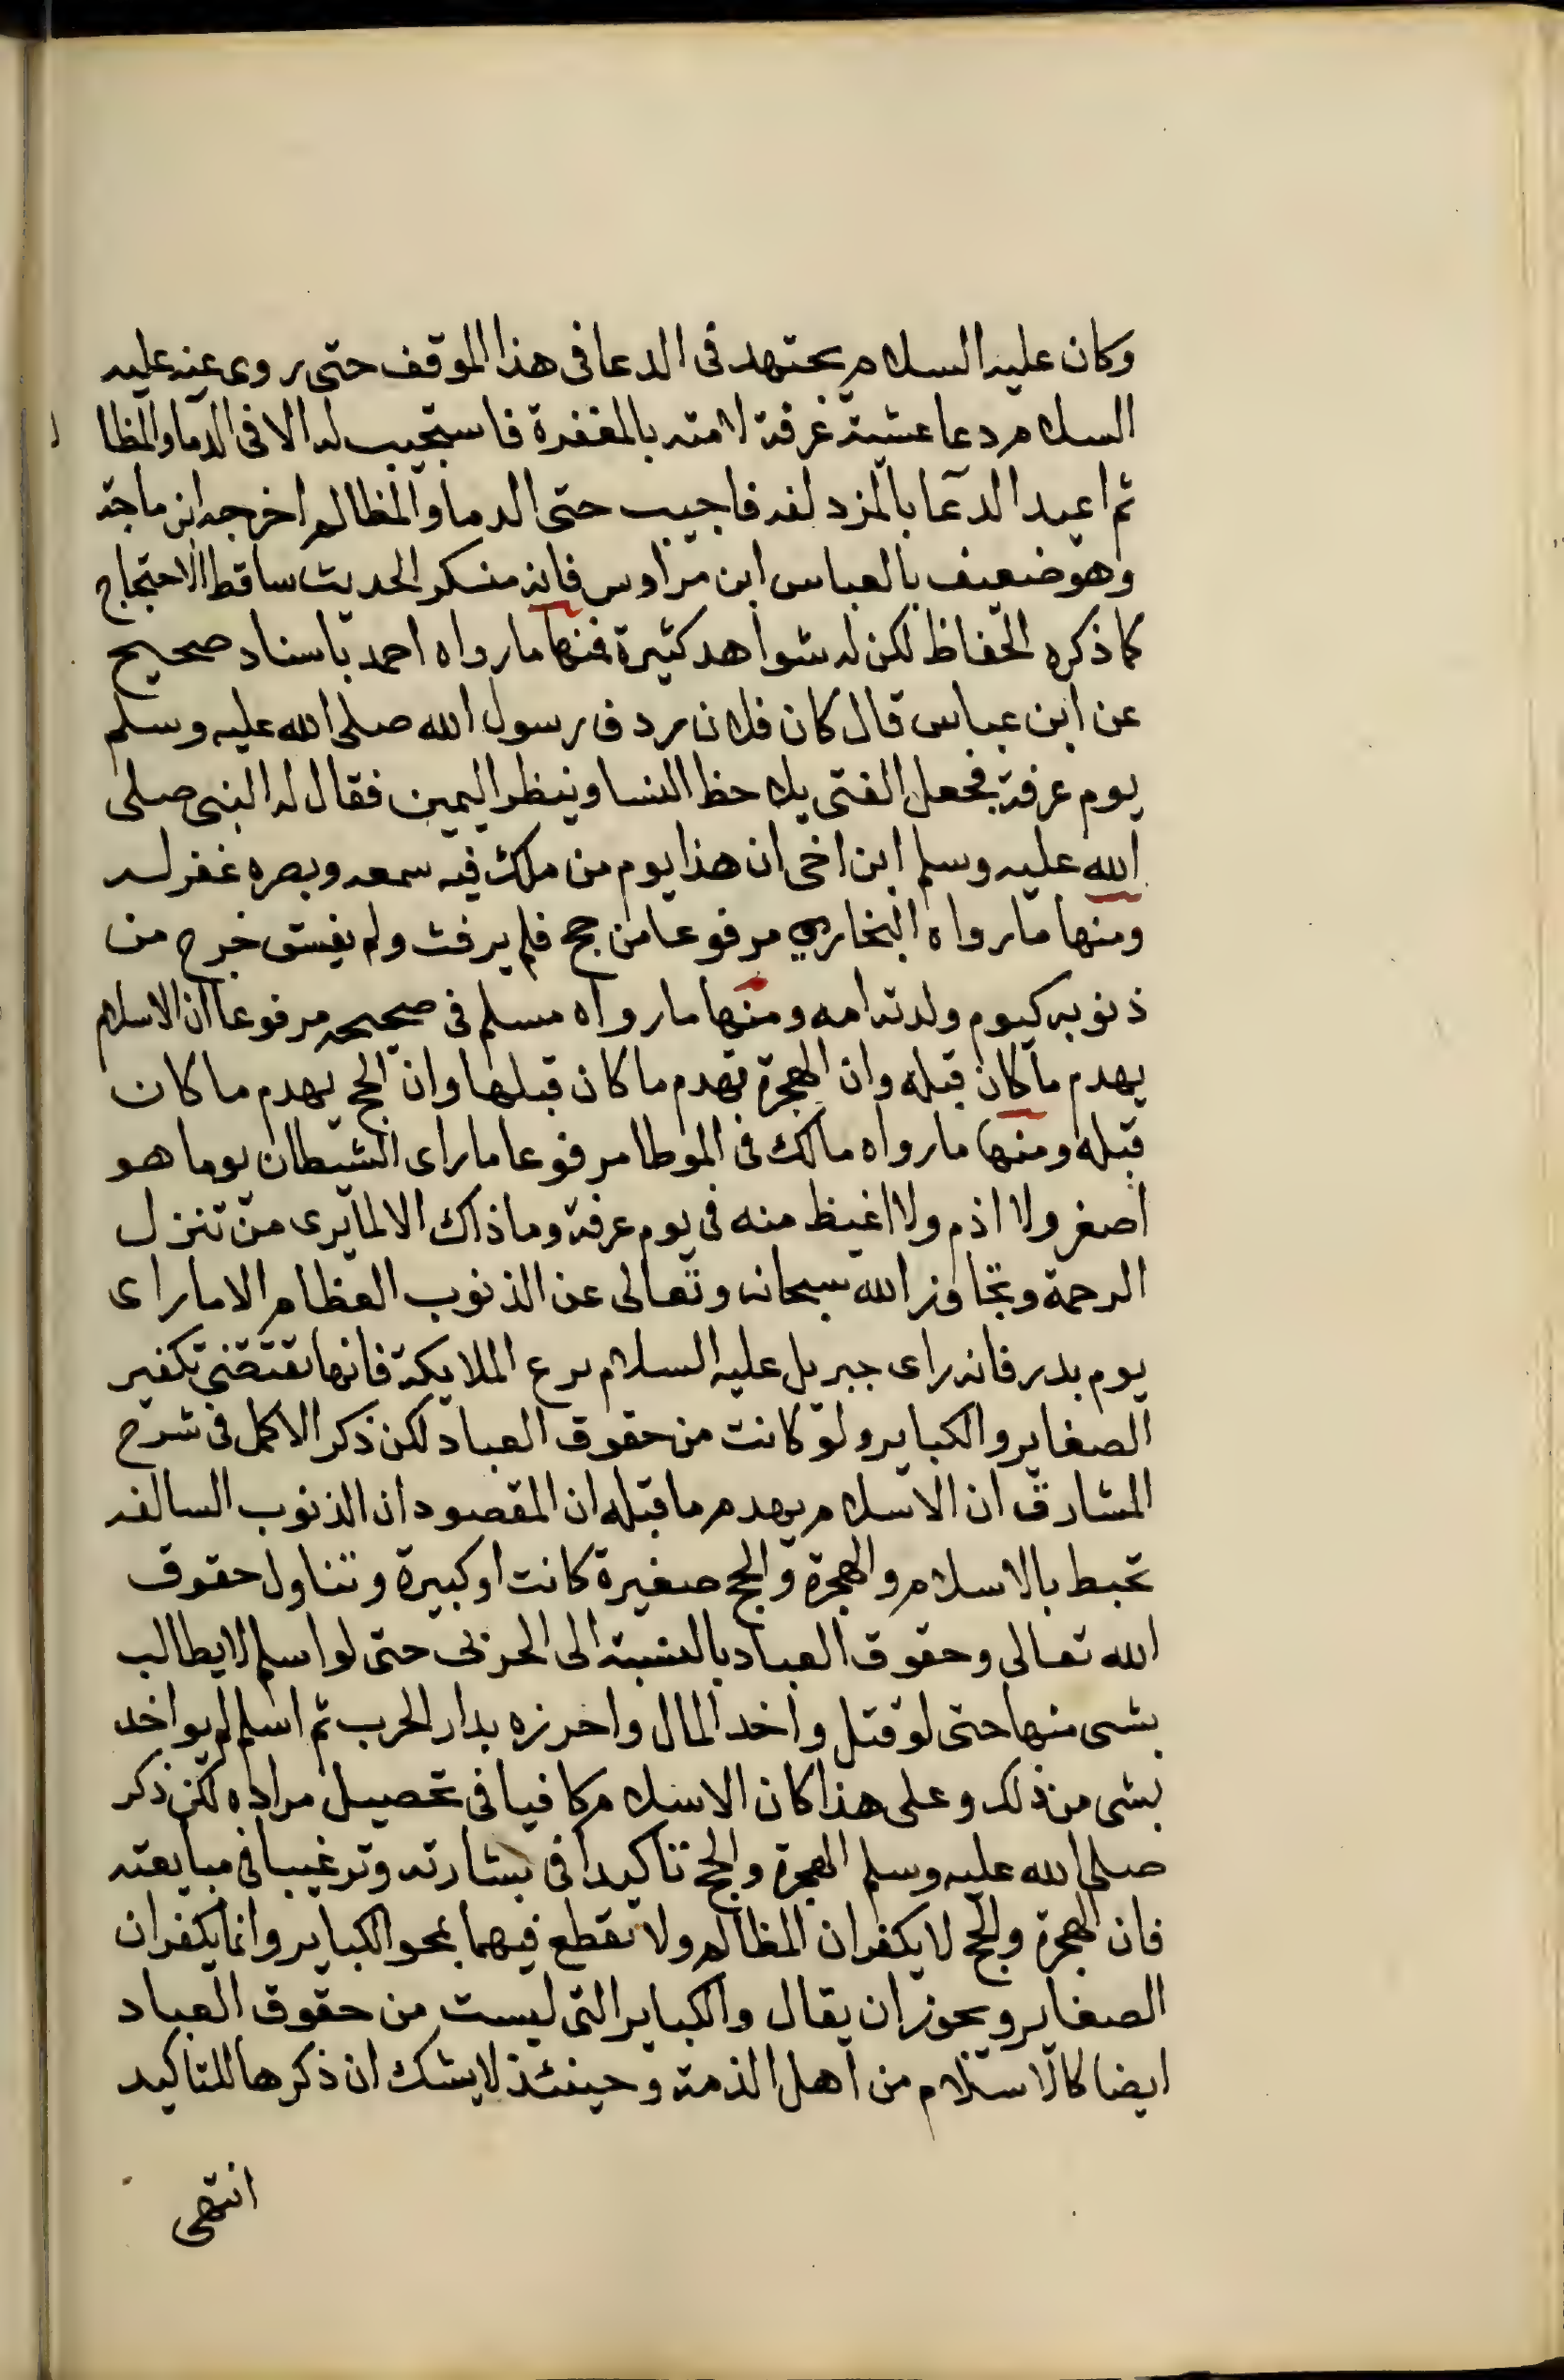 وكان عليه السلام يجتهد فى الدعا فى هذا الموقف حتى روى عنه عليه
السلام دعا عشية عرفة لامته بالمغفرة فاستجيب له الا فى الدما والمظا
ثم اعيد الدعا بالمزدلفه فاجيب حتى الدما والمظالم اخرجه ابن ماجة
وهو ضعيف بالعباس ابن مرادس فانه منكر الحديث ساقط الاحتجاج
كما ذكره الحفاظ لكن له شواهد كثيرة فمنها ما رواه احمد باسناد صحيح
عن ابن عباس قال كان فلان ردف رسول الله صلى الله عليه وسلم
يوم عرفة فجعل الفتى يلاحظ النسا وينظر اليهن فقال له النبى صلى
الله عليه وسلم ابن اخى ان هذا يوم من ملك فيه سمعه وبصره غفر له
ومنها ما رواه البخاري مرفوعا من حج فلم يرفث ولم يفسق خرج من
ذنوبه كيوم ولدته امه ومنها ما رواه مسلم فى صحيحه مرفوعا ان الاسلام
يهدم ما كان قبله وان الهجرة تهدم ما كان قبلها وان الحج يهدم ما كان
قبله ومنها ما رواه مالك فى الموطا مرفوعا ما راى الشيطان يوما هو
اصغر ولا اذم ولا اغيظ منه فى يوم عرفة وما ذاك الا لما يرى من تنزل
الرحمة وتجاوز الله سبحانه وتعالى عن الذنوب العظام الا ما راى
يوم بدر فانه راى جبريل عليه السلام يزع الملايكة فانها تقتضى تكفير
الصغاير والكباير ولو كانت من حقوق العباد لكن ذكر الاكمل فى شرح
المشارق ان الاسلام يهدم ما قبله ان المقصود ان الذنوب السالفه
تحبط بالاسلام والهجرة والحج صغيرة كانت او كبيرة وتتناول حقوق
الله تعالى وحقوق العباد بالنسبة الى الحربى حتى لو اسلم لا يطالب
بشى منها حتى لو قتل واخد المال واحرزه بدار الحرب ثم اسلم لم يواخد
بشى من ذلك وعلى هذا كان الاسلام كافيا فى تحصيل مراده لكن ذكر
صلى الله عليه وسلم الهجرة والحج تاكيدا فى بشارته وترغيبا فى مبايعته
فان الهجرة والحج لا يكفران المظالم ولا نقطع فيهما بمحو الكباير وانما يكفران
الصغاير ويجوز ان يقال والكباير التى ليست من حقوق العباد
ايضا كالاسلام من اهل الذمة وحينئذ لا يشك ان ذكرها للتاكيد
انتهى